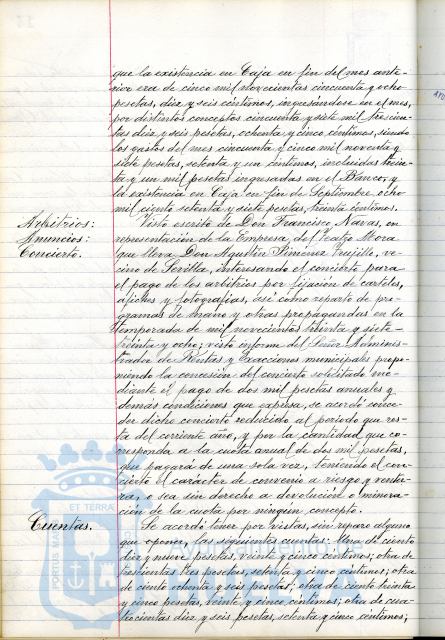 que la existencia en Caja en fin del mes ante-
rior era de cinco mil novecientas cincuenta y ocho
pesetas, diez y seis céntimos, ingresándose en el mes,
por distintos conceptos cincuenta y siete mil trescien-
tas diez y seis pesetas, ochenta y cinco céntimos, siendo
los gastos del mes cincuenta y cinco mil noventa y
siete pesetas, setenta y un céntimos, incluidas trein-
ta y un mil pesetas ingresadas en el Banco, y
la existencia en Caja en fin de Septiembre ocho
mil ciento setenta y siete pesetas, treinta céntimos.
Arbitrios:
Anuncios:
Concierto.
Visto escrito de Don Francisco Navas, en
representación de la Empresa, del Teatro Mora
que lleva Don Agustín Jiménez Trujillo, ve-
cino de Sevilla, interesando el concierto para
el pago de los arbitrios por fijación de carteles,
afiches y fotografías, así como reparto de pro-
gramas de mano y otras propagandas en la
temporada de mil novecientos treinta y siete-
treinta y ocho; visto informe del Señor Adminis-
trador de Rentas y Exacciones municipales propo-
niendo la concesión del concierto solicitado me-
diante el pago de dos mil pesetas anuales y
demás condiciones que expresa, se acordó conce-
der dicho concierto reducido al período que res-
ta del corriente año, y por la cantidad que co-
rresponda a la cuota anual de dos mil pesetas,
que pagará de una sola vez, teniendo el con-
cierto el carácter de convenio a riesgo y ventu-
ra, o sea sin derecho a devolución o minora-
ción de la cuota por ningún concepto.
Cuentas.
Se acordó tener por vistas, sin reparo alguno
que oponer, las siguientes cuentas: Una de ciento
diez y nueve pesetas, veinte y cinco céntimos; otra de
trescientas tres pesetas, setenta y cinco céntimos; otra
de ciento ochenta y seis pesetas; otra de ciento treinta
y cinco pesetas, veinte y cinco céntimos; otra de cua-
trocientas diez y seis pesetas, setenta y cinco céntimos;
PORTUS MARIS
ET TERRÆ